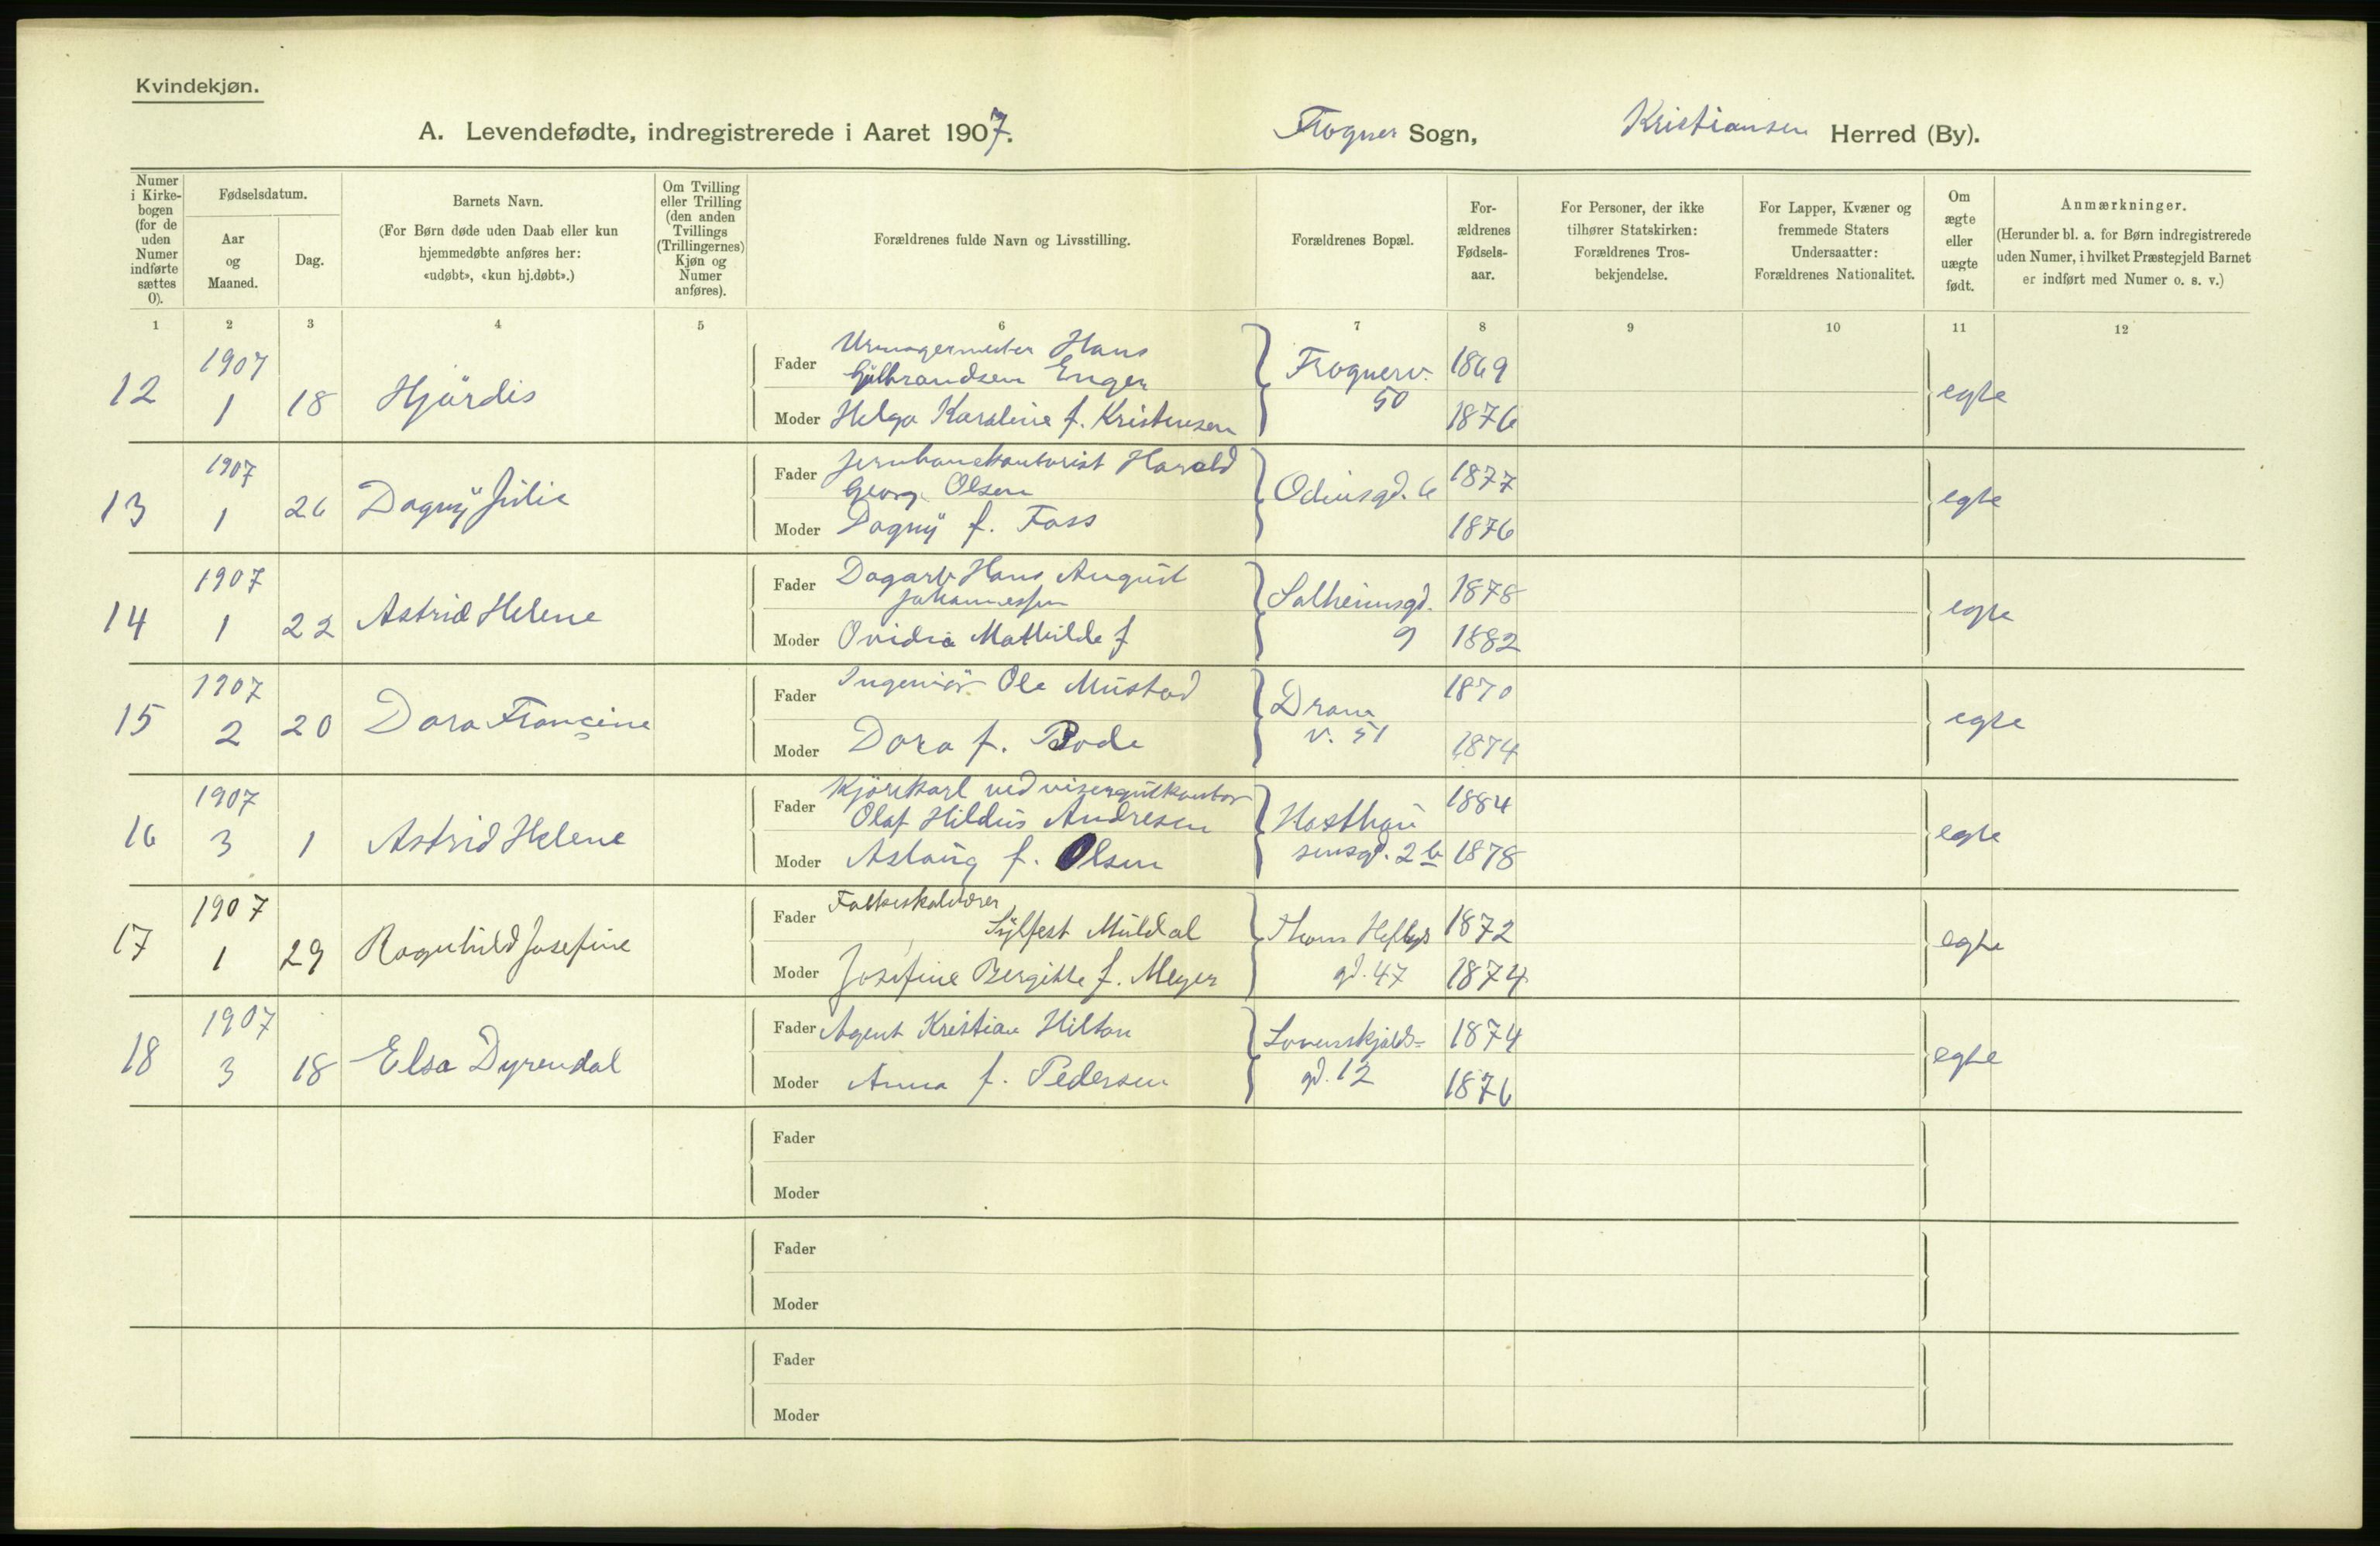 Kvindekjøn.
A. Levendefødte, indregistrerede i Aaret 1907. Frogner Sogn, Herred (By).
Numer i Kirke- bogen (for de uden Numer indførte sættes 0).
Fødselsdatum.
Aar og Maaned.
Dag.
Barnets Navn.
(For Børn døde uden Daab eller kun
hjemmedøbte anføres her:
«udøbt», «kun hj.døbt».)
Om Tvilling eller Trilling (den anden Tvillings (Trillingernes) Kjøn og Numer anføres).
Forældrenes fulde Navn og Livsstilling.
Forældrenes Bopæl.
For- ældrenes Fødsels- aar.
For Personer, der ikke tilhører Statskirken: Forældrenes Tros- bekjendelse.
For Lapper, Kvæner og fremmede Staters Undersaatter: Forældrenes Nationalitet.
Om ægte eller uægte født.
Anmærkninger.
(Herunder bl. a. for Børn indregistrerede
uden Numer, i hvilket Præstegjeld Barnet
er indført med Numer o. s. v.)
1 2 3 4 5 6 7 8 9 10 11 12
12 1907 1 18 Hjördis
Fader Urmagermester Hans
Gülbrandsen Enger
Moder Helga Karoline f. Kristensen
Frognerv. 50
1869
1876
egte
13 1907 1 26 Dagny Júlie
Fader Jernbanekontorist Harald
Georg Olsen
Moder Dagny f. Foss
Odinsgd. 6
1877
1876
egte
14 1907 1 22 Astrid Helene
Fader Dagarb. Hans Augúst
Johannessen
Moder Ovidia Mathilde f
Solheimsgd.
9
1878
1882
egte
15 1907 2 20 Dora Francine
Fader Ingeniör Ole Mústad
Moder Dora f. Bode
Dram
v. 51
1870
1874
egte
16 1907 3 1 Astrid Helene
Fader Kjörekarl ved visergútkontor
Olaf Hildús Andresen
Moder Aslaúg f. Olsen
Hasthaú
sensgd. 2 b
1884
1878
egte
17 1907 1 29 Ragnhild Josefine
Fader
Sylfest Múldal
Moder Josefine Bergitte f. Meyer
Thom Heftys
gd. 47
1872
1874
egte
18 1907 3 18 Elsa Dyrendal
Fader Agent Kristian Hilton
Moder Anna f. Pedersen
Lovenskjolds-
gd. 12
1874
1876
egte
Fader
Moder
Fader
Moder
Fader
Moder